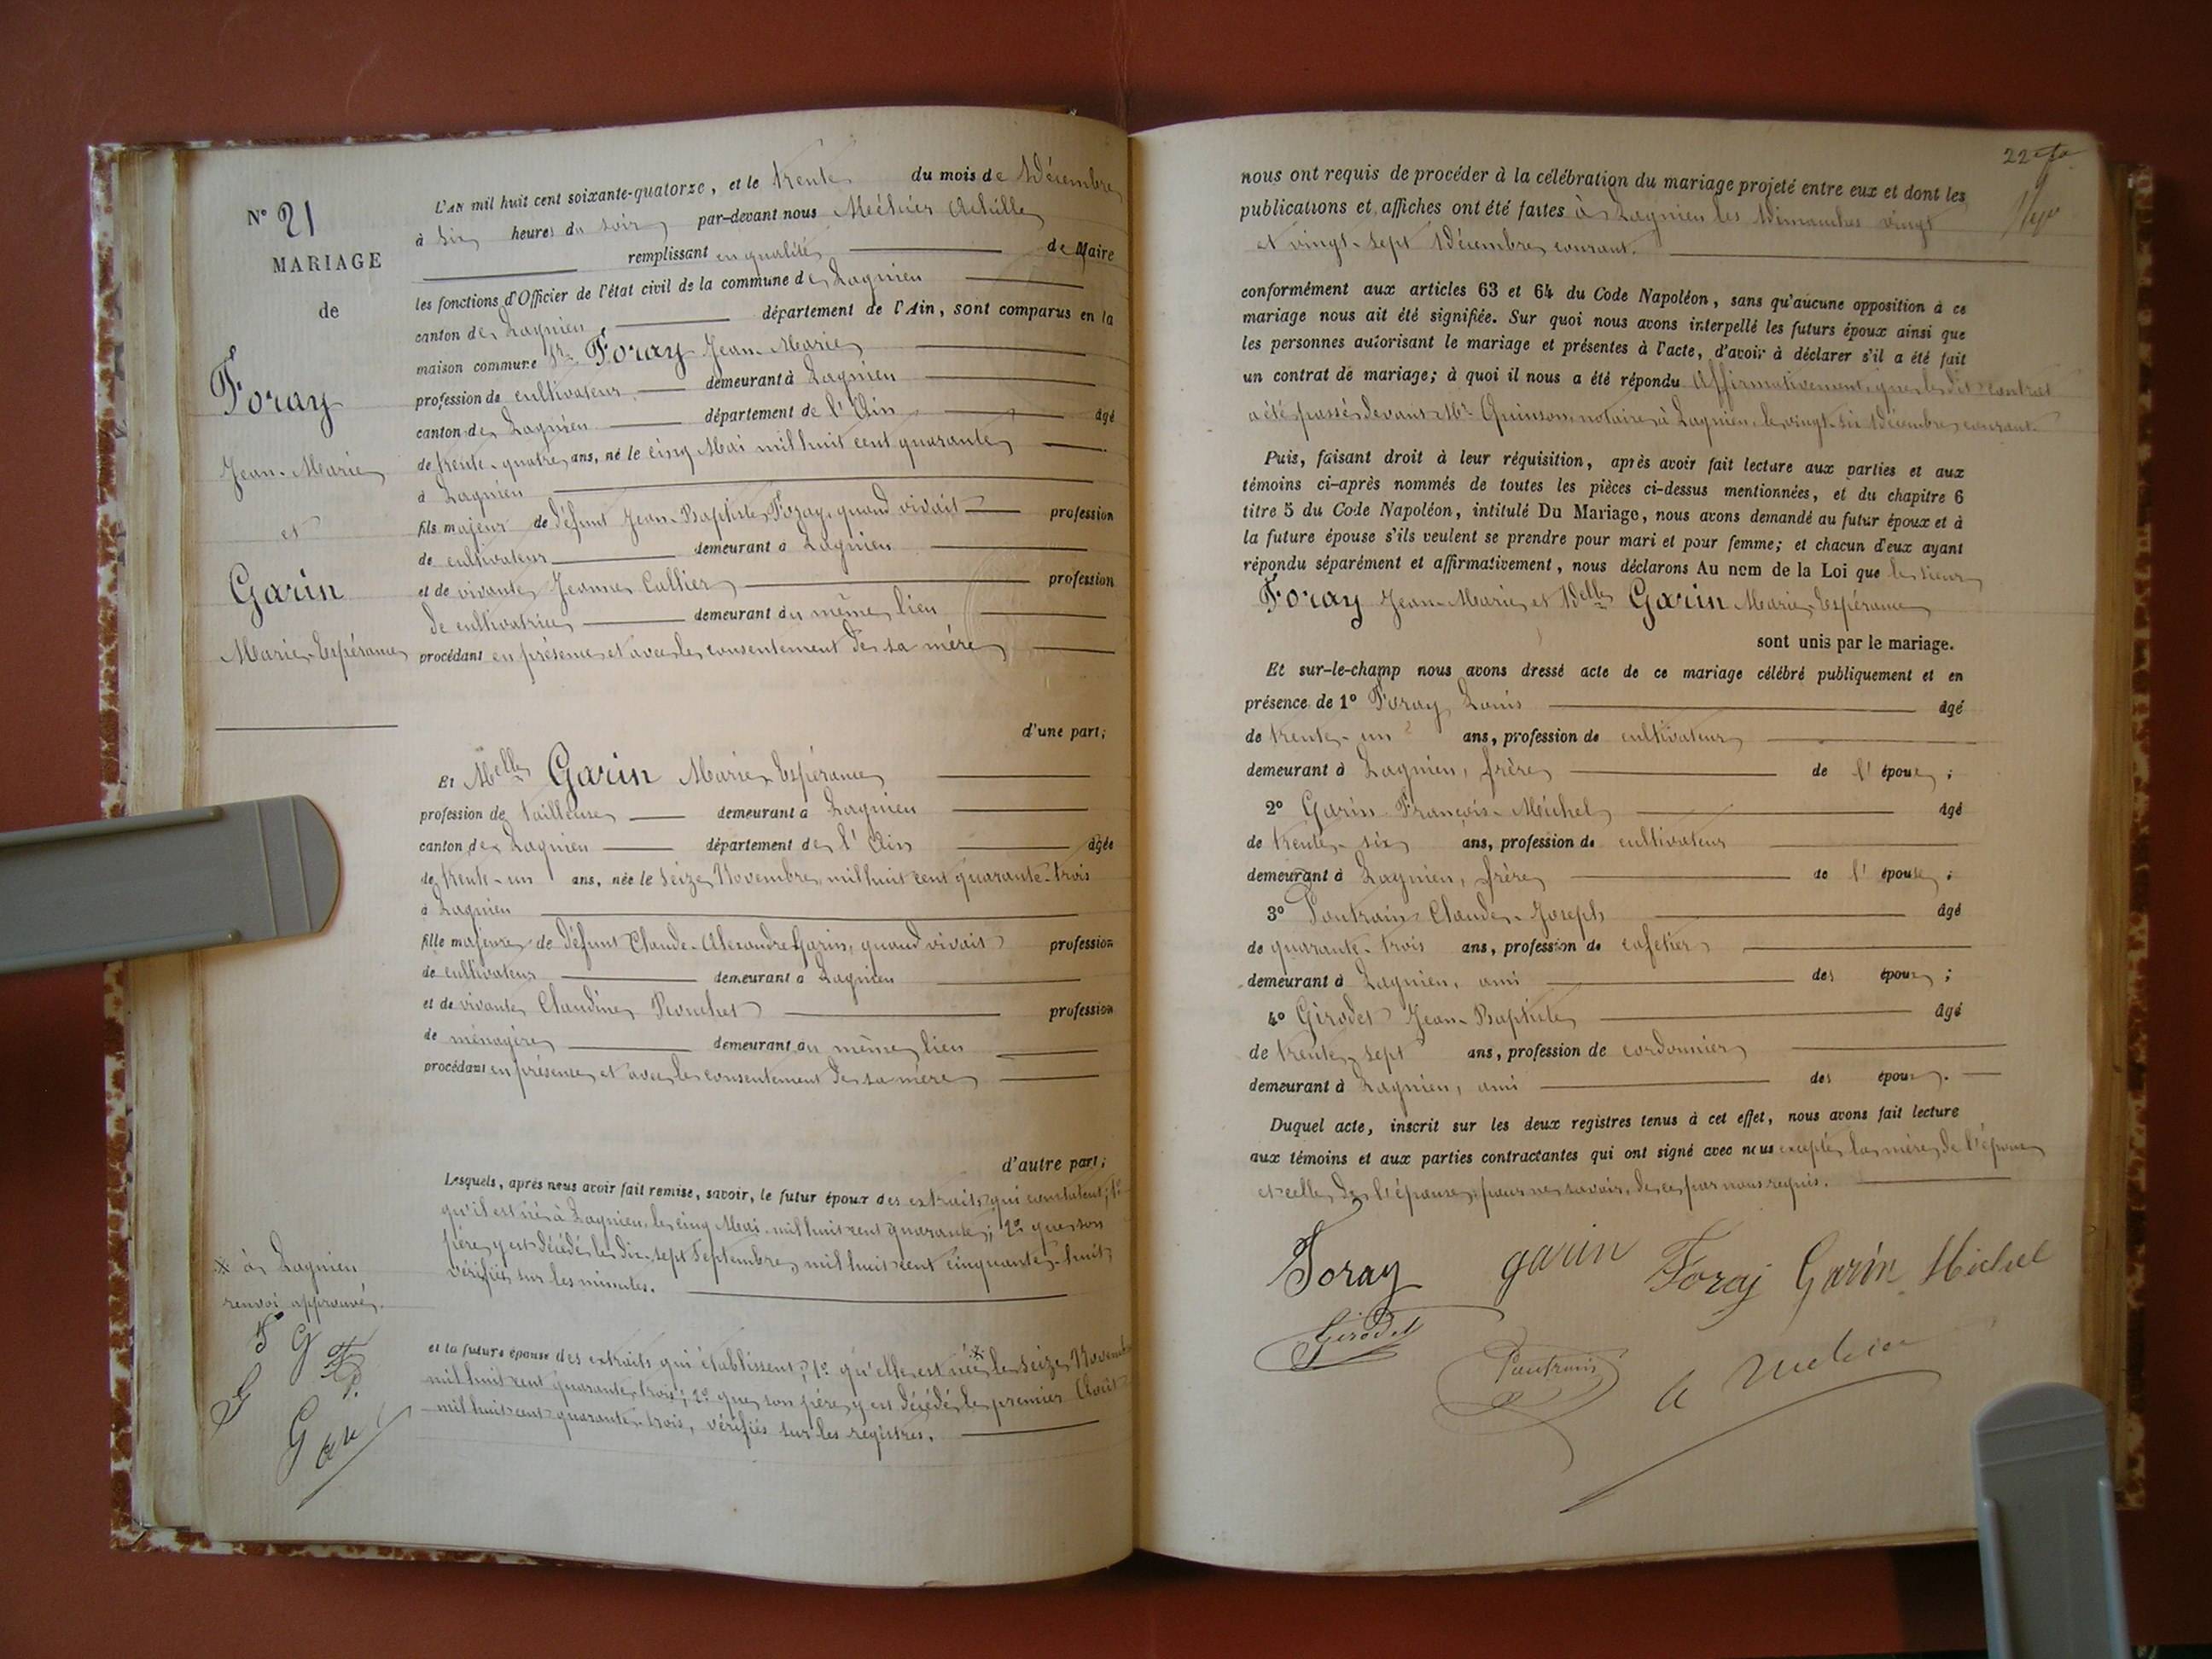 N° 21
MARIAGE
de
Foray
Jean-Marie
et
Garin
Marie-Espérance
L'AN mil huit cent soixante-quatorze, et le trente du mois de Décembre
à six heures du soir par-devant nous Achille
remplissant en qualité de Maire
les fonctions d'Officier de l'état civil de la commune de Lagnieu
canton de Lagnieu département de l'Ain, sont comparus en la
maison commune Sr. Foray Jean-Marie
profession de cultivateur demeurant à Lagnieu
canton de Lagnieu département de l'Ain âgé
de trente-quatre ans, né le cinq Mai mil huit cent quarante
à Lagnieu
fils majeur de défunt Jean-Baptiste Foray, quand vivait profession
de cultivateur demeurant à Lagnieu
et de vivante Jeanne Cullier profession
de cultivatrice demeurant au même lieu
procédant en présence et avec le consentement de sa mère
d'une part;
Et Melle Garin Marie-Espérance
profession de tailleuse demeurant à Lagnieu
canton de Lagnieu département de l'Ain âgée
de trente-un ans, née le seize Novembre mil huit cent quarante-trois
à Lagnieu
fille majeure de défunt Claude-Alexandre Garin, quand vivait profession
de cultivateur demeurant à Lagnieu
et de vivante Claudine profession
de ménagère demeurant au même lieu
procédant en présence et avec le consentement de sa mère
d'autre part;
Lesquels, après nous avoir fait remise, savoir, le futur époux des extraits qui constatent; 1°
qu'il est né à Lagnieu, le cinq Mai mil huit cent quarante; 2° que son
père y est décédé le dix-sept Septembre mil huit cent cinquante-huit,
vérifiés sur les minutes.
et la future épouse des extraits qui établissent; 1° qu'elle est née * le seize Novembre
mil huit cent quarante-trois; 2° que son père y est décédé le premier Août
mil huit cent quarante-trois, vérifiés sur les registres.
* à Lagnieu
renvoi approuvé.
F G
G
22
nous ont requis de procéder à la célébration du mariage projeté entre eux et dont les
publications et affiches ont été faites à Lagnieu les Dimanches vingt
et vingt-sept Décembre courant.
conformément aux articles 63 et 64 du Code Napoléon, sans qu'aucune opposition à ce
mariage nous ait été signifiée. Sur quoi nous avons interpellé les futurs époux ainsi que
les personnes autorisant le mariage et présentes à l'acte, d'avoir à déclarer s'il a été fait
un contrat de mariage; à quoi il nous a été répondu Affirmativement, que le dit contrat
a été passé devant Me Quinson, notaire à Lagnieu, le vingt-six Décembre courant.
Puis, faisant droit à leur réquisition, après avoir fait lecture aux parties et aux
témoins ci-après nommés de toutes les pièces ci-dessus mentionnées, et du chapitre 6
titre 5 du Code Napoléon, intitulé Du Mariage, nous avons demandé au futur époux et à
la future épouse s'ils veulent se prendre pour mari et pour femme; et chacun d'eux ayant
répondu séparément et affirmativement, nous déclarons Au nom de la Loi que le sieur
Foray Jean-Marie et Delle Garin Marie-Espérance
sont unis par le mariage.
Et sur-le-champ nous avons dressé acte de ce mariage célébré publiquement et en
présence de 1° Foray Louis âgé
de trente-un ans, profession de cultivateur
demeurant à Lagnieu, frère de l'époux;
2° Garin François-Michel âgé
de trente-six ans, profession de cultivateur
demeurant à Lagnieu, frère de l'épouse;
3° Pautrain Claude-Joseph âgé
de quarante-trois ans, profession de cafetier
demeurant à Lagnieu, ami des époux;
4° Girodet Jean-Baptiste âgé
de trente-sept ans, profession de cordonnier
demeurant à Lagnieu, ami des époux.
Duquel acte, inscrit sur les deux registres tenus à cet effet, nous avons fait lecture
aux témoins et aux parties contractantes qui ont signé avec nous excepté la mère de l'époux
et celle de l'épouse, pour ne savoir, de ce par nous requis.
Foray garin Foray Garin Michel
Girodet Pautrain